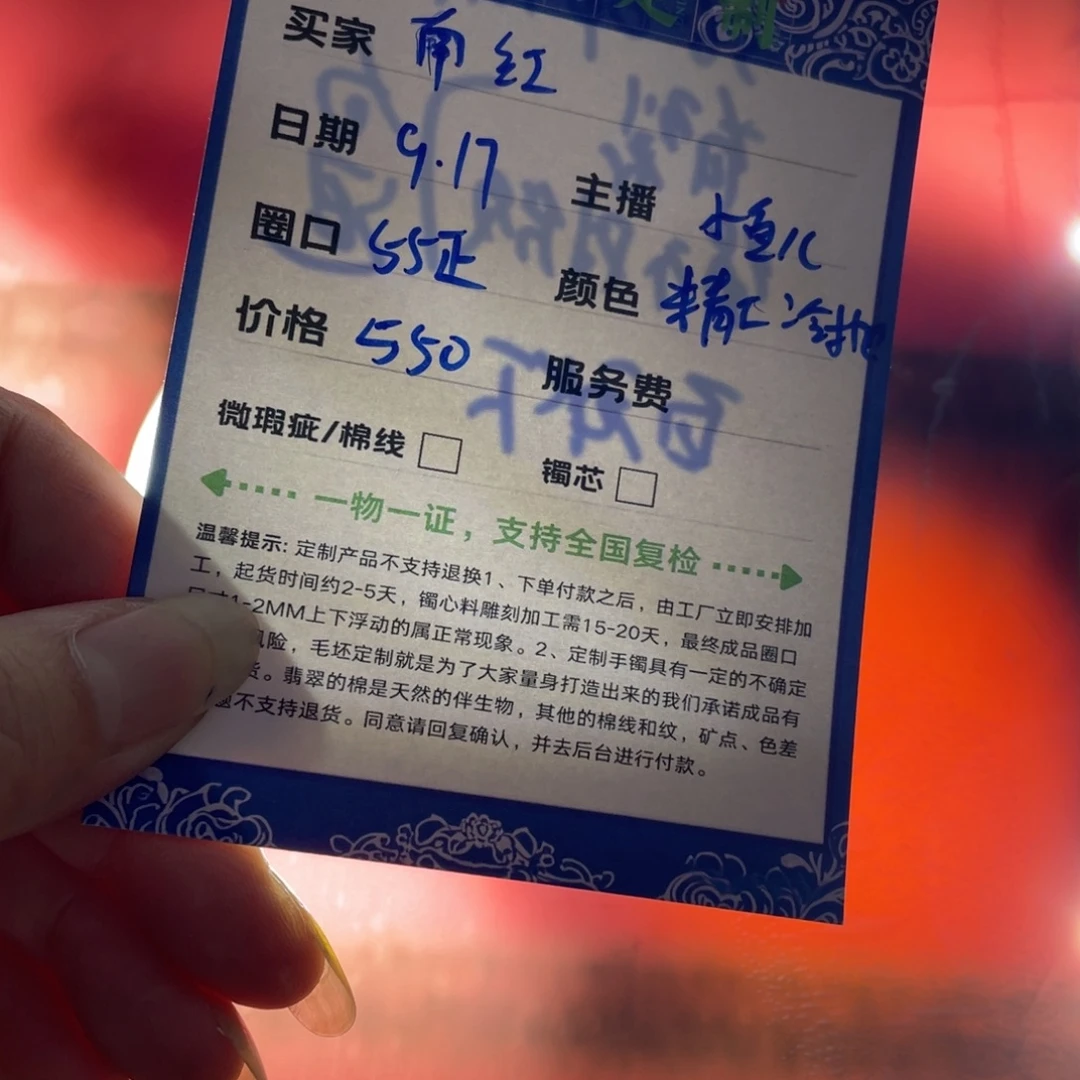 定制
买家 南红
日期 9.17 主播 小鱼儿
圈口 55正 颜色 精工冷抛
价格 550 服务费
微瑕疵/棉线 镯芯
一物一证，支持全国复检
温馨提示: 定制产品不支持退换1、下单付款之后，由工厂立即安排加
工，起货时间约2-5天，镯心料雕刻加工需15-20天，最终成品圈口
尺寸1-2MM上下浮动的属正常现象。2、定制手镯具有一定的不确定
风险，毛坯定制就是为了大家量身打造出来的我们承诺成品有
货。翡翠的棉是天然的伴生物，其他的棉线和纹，矿点、色差
题不支持退货。同意请回复确认，并去后台进行付款。